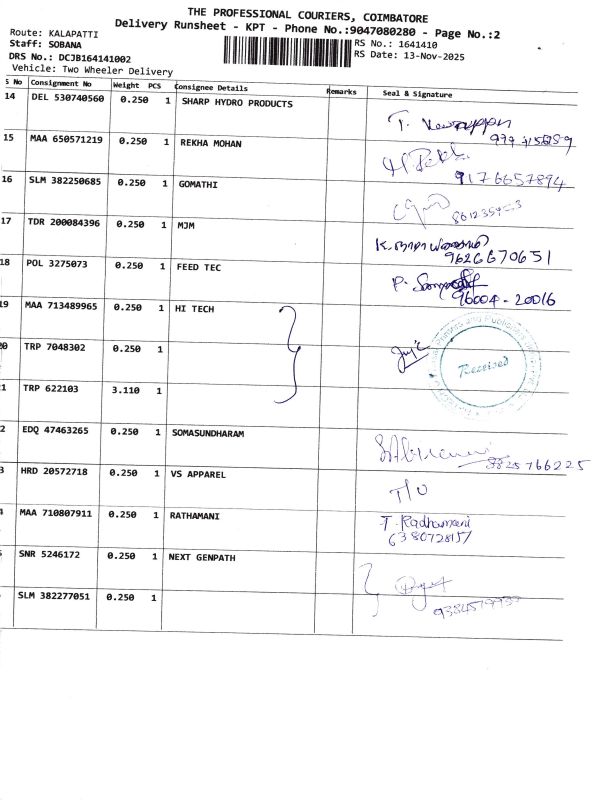 THE PROFESSIONAL COURIERS, COIMBATORE
Delivery Runsheet - KPT - Phone No.:9047080280 - Page No.:2
Route: KALAPATTI
Staff: SOBANA
DRS No.: DCJB164141002
Vehicle: Two Wheeler Delivery
RS No.: 1641410
RS Date: 13-Nov-2025
S No Consignment No Weight PCS Consignee Details Remarks Seal & Signature
14 DEL 530740560 0.250 1 SHARP HYDRO PRODUCTS
15 MAA 650571219 0.250 1 REKHA MOHAN
9176657894
16 SLM 382250685 0.250 1 GOMATHI
17 TDR 200084396 0.250 1 MJM
9626670651
18 POL 3275073 0.250 1 FEED TEC
96004-20016
19 MAA 713489965 0.250 1 HI TECH
0 TRP 7048302 0.250 1
Received
1 TRP 622103 3.110 1
2 EDQ 47463265 0.250 1 SOMASUNDHARAM
3 HRD 20572718 0.250 1 VS APPAREL
T/O
4 MAA 710807911 0.250 1 RATHAMANI
T. Radhamani
6380728157
5 SNR 5246172 0.250 1 NEXT GENPATH
SLM 382277051 0.250 1